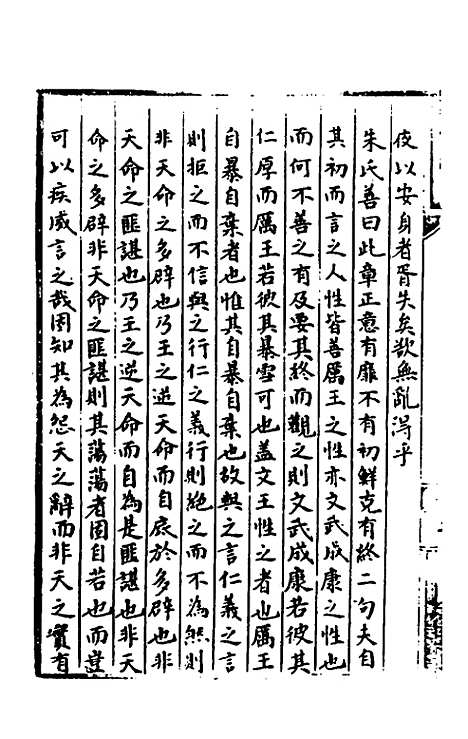 伎以安身者胥失矣欲無亂得乎
朱氏善曰此章正意有靡不有初鮮克有終二句夫自
其初而言之人性皆善厲王之性亦文武成康之性也
而何不善之有及要其終而觀之則文武成康若彼其
仁厚而厲王若彼其暴雪可也盖文王性之者也厲王
自暴自棄者也惟其自暴自棄也故與之言仁義之言
則拒之而不信與之行仁之義行則絶之而不為無則
非天命之多辟也乃王之逆天命而自底於多辟也非
天命之匪諶也乃王之逆天命而自為是匪諶也非天
命之多辟非天命之匪諶則其蕩蕩者固自若也而豈
可以疾威言之哉固知其為怨天之辭而非天之實有